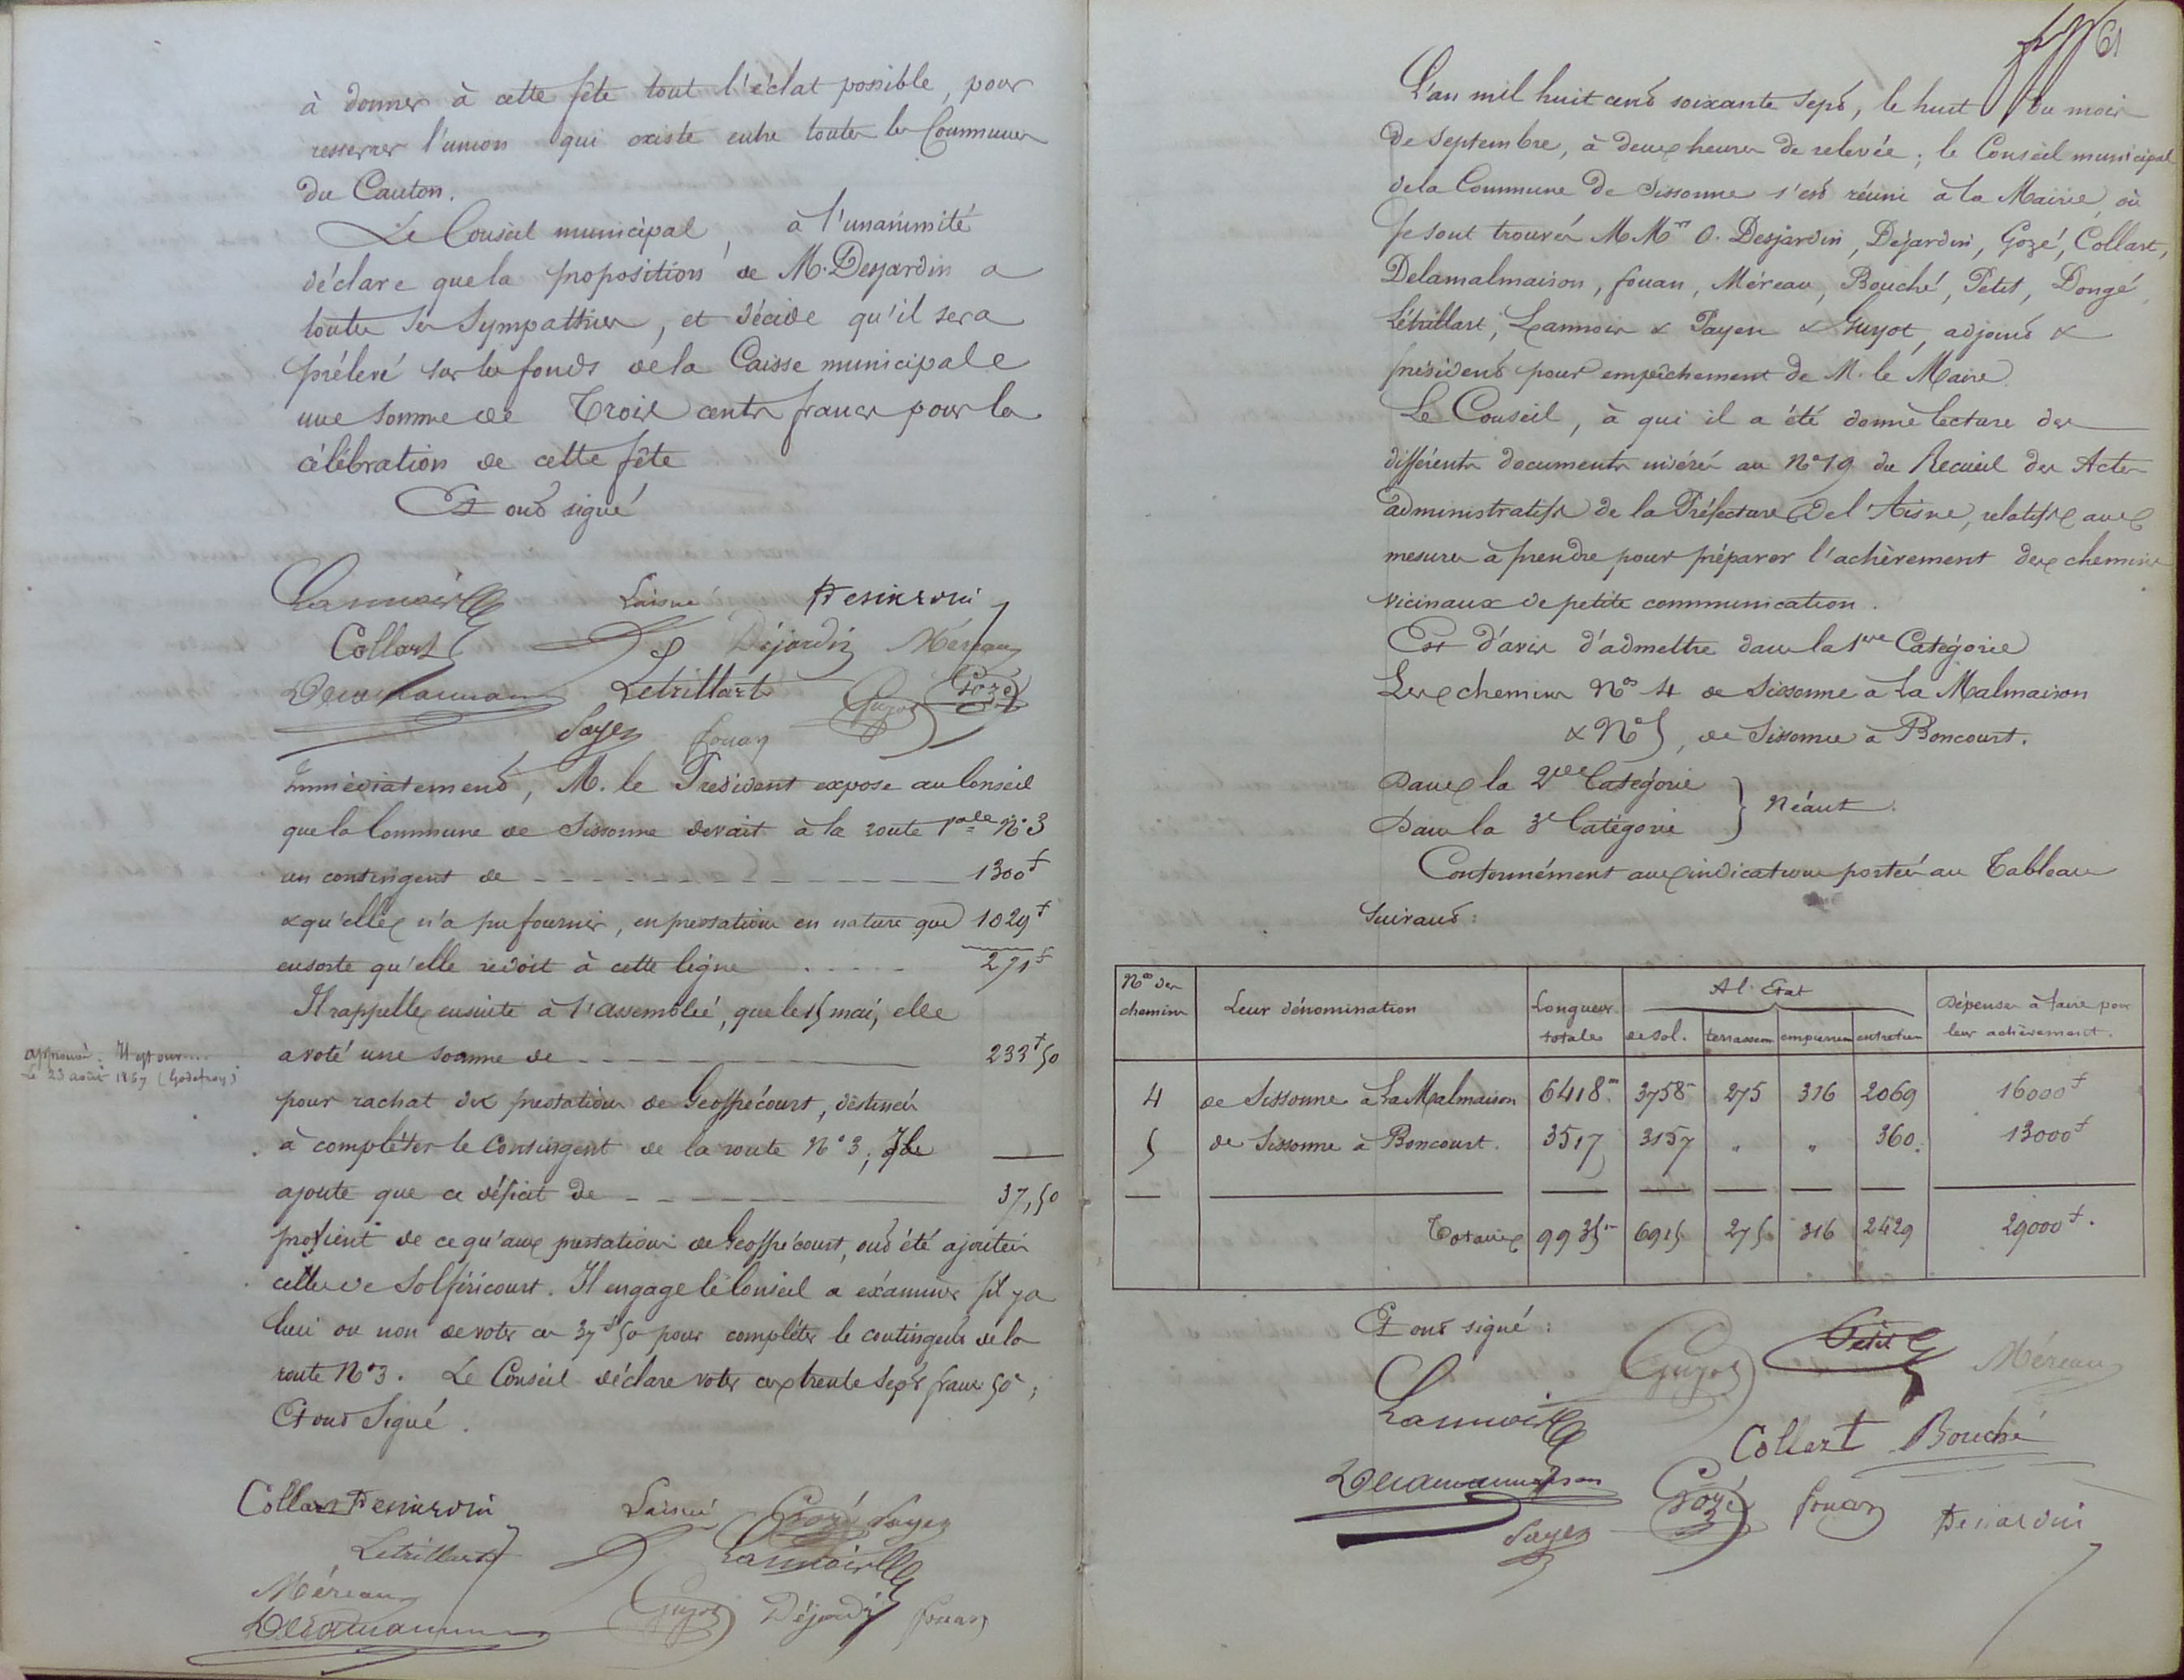 à donner à cette fête tout l'éclat possible, pour
resserrer l'union qui existe entre toutes les Communes
du Canton.
Le Conseil municipal, à l'unanimité
déclare que la proposition de M. Desjardin a
toutes ses Sympathies, et décide qu'il sera
prélevé sur les fonds de la Caisse municipale
une somme de Trois cents francs pour la
célébration de cette fête
Et ont signé
Lannois Laisné Desjardin
Collart Déjardin Méreau
Delamalmaison Letrillart Guyot Gozé
Payen fouan
Immédiatement, M. le Président expose au Conseil
que la Commune de Sissonne devait à la route Pale N° 3
un contingent de 1300f
& qu'elle n'a pu fournir, en prestations en nature que 1029f
ensorte qu'elle redoit à cette ligne 271f
Il rappelle ensuite à l'assemblée, que le 15 mai, elle
a voté une somme de 233f50
approuvé
le 23 août 1867 (Godefroy)
pour rachat des prestations de Geoffrécourt, destinées
à compléter le Contingent de la route N° 3; Il
ajoute que ce déficit de 37,50
provient de ce qu'aux prestations de Geoffrécourt, ont été ajoutées
celles de Solféricourt. Il engage le Conseil a examiner s'il y a
lieu ou non de voter ces 37f50 pour compléter le contingent de la
route N° 3. Le Conseil déclare voter ces trente sept francs 50c;
Et ont Signé.
Collart Desjardin Laisné Gozé Payen
Letrillart Lannois
Méreau Guyot Déjardin fouan
Delamalmaison
61
L'an mil huit cent soixante sept, le huit du mois
de Septembre, à deux heures de relevée; le Conseil municipal
de la Commune de Sissonne s'est réuni à la Mairie, où
se sont trouvés MMrs O. Desjardin, Déjardin, Gozé, Collart,
Delamalmaison, fouan, Méreau, Bouché, Petit, Dongé
Létrillart, Lannois & Payen & Guyot, adjoint &
président pour empêchement de M. le Maire.
Le Conseil, à qui il a été donné lecture des
différents documents insérés au N° 19 du Recueil des Actes
administratifs de la Préfecture de l'Aisne, relatifs aux
mesures à prendre pour préparer l'achèvement des chemins
vicinaux de petite communication.
Est d'avis d'admettre dans la 1ère Catégorie
Les chemins Nos 4 de Sissonne à La Malmaison
& N° 5, de Sissonne à Boncourt.
Dans la 2ème Catégorie
Dans la 3e Catégorie } Néant.
Conformément aux indications portées au Tableau
Suivant:
Nos des chemins Leur dénomination Longueur totale A l'Etat Dépenses à faire pour leur achèvement.
de sol. terrassem empierrem entretien
4 de Sissonne à La Malmaison 6418m 3758m 275 316 2069 16000f
5 de Sissonne à Boncourt. 3517 3157 " " 360. 13000f
Totaux 9935m 6915 275 316 2429 29000f.
Et ont signé:
Guyot Petit Méreau
Lannois
Collart Bouché
Delamalmaison Gozé fouan Desjardin
Payen